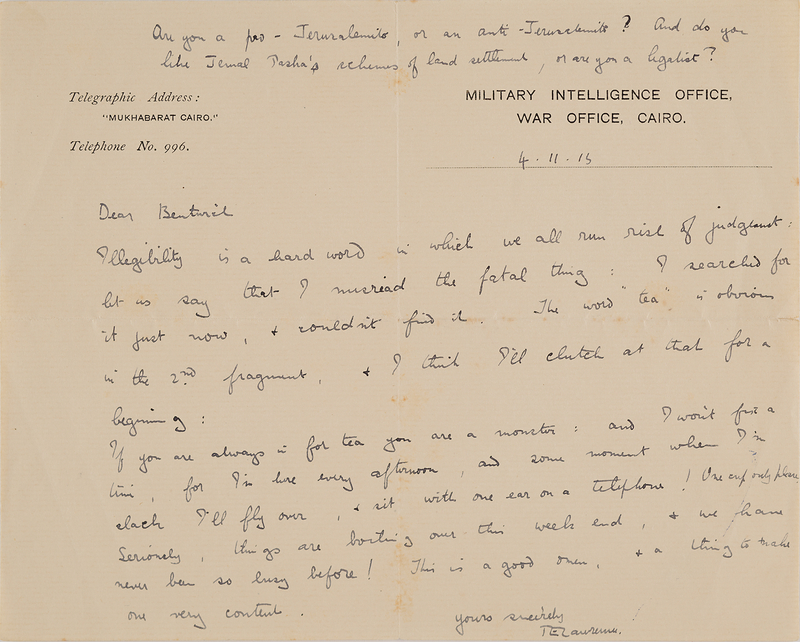 Are you a pro-Jerusalemite, or an anti-Jerusalemite? And do you
like Jemal Pasha's schemes of land settlement, or are you a legalist?
Telegraphic Address:
"MUKHABARAT CAIRO."
Telephone No. 996.
MILITARY INTELLIGENCE OFFICE,
WAR OFFICE, CAIRO.
4.11.15
Dear Bentwich
Illegibility is a hard word in which we all run risk of judgement:
let us say that I misread the fatal thing: I searched for
it just now, & couldn't find it. The word "tea" is obvious
in the 2nd fragment, & I think I'll clutch at that for a
beginning:
If you are always in for tea you are a monster: and I won't fix a
time, for I'm here every afternoon, and some moment when I'm
slack I'll fly over, & sit with one ear on a telephone! One cup only please
Seriously, things are boiling over this week end, & we have
never been so busy before! This is a good omen, & a thing to make
one very content.
yours sincerely
TELawrence.